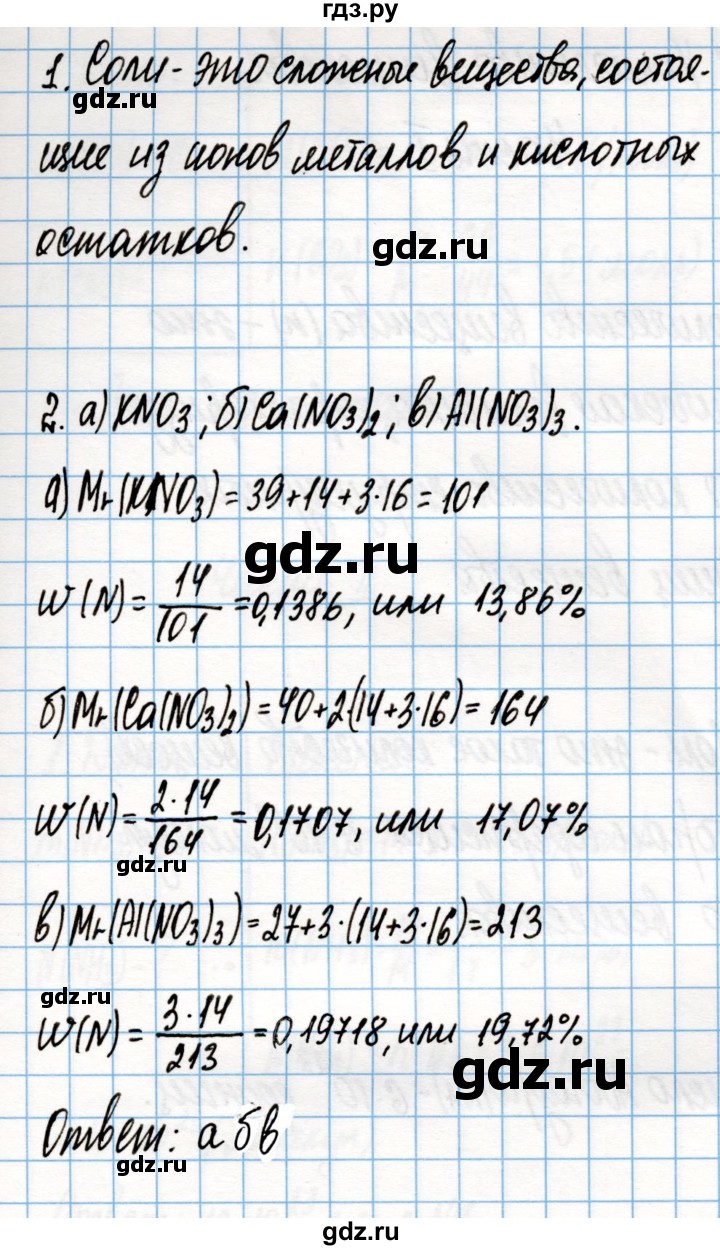 гдз.ру
1. Соли - это сложные вещества, состоя-
gdz.ru
щие из ионов металлов и кислотных
остатков.
gdz.ru
2. а) KNO3; б) Ca(NO3)2; в) Al(NO3)3.
а) Mr(KNO3) = 39+14+3·16 = 101
gdz.ru
W(N) = 14/101 = 0,1386, или 13,86%
б) Mr(Ca(NO3)2) = 40+2(14+3·16) = 164
W(N) = 2·14/164 = 0,1707, или 17,07%
gdz.ru
в) Mr(Al(NO3)3) = 27+3·(14+3·16) = 213
gdz.ru
W(N) = 3·14/213 = 0,19718, или 19,72%
gdz.ru
Ответ: а б в
gdz.ru
gdz.ru